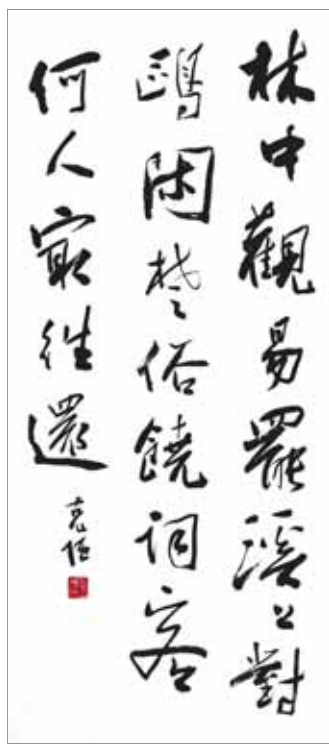 林中觀易罷溪上對
鷗閑楚俗饒詞客
何人最往還